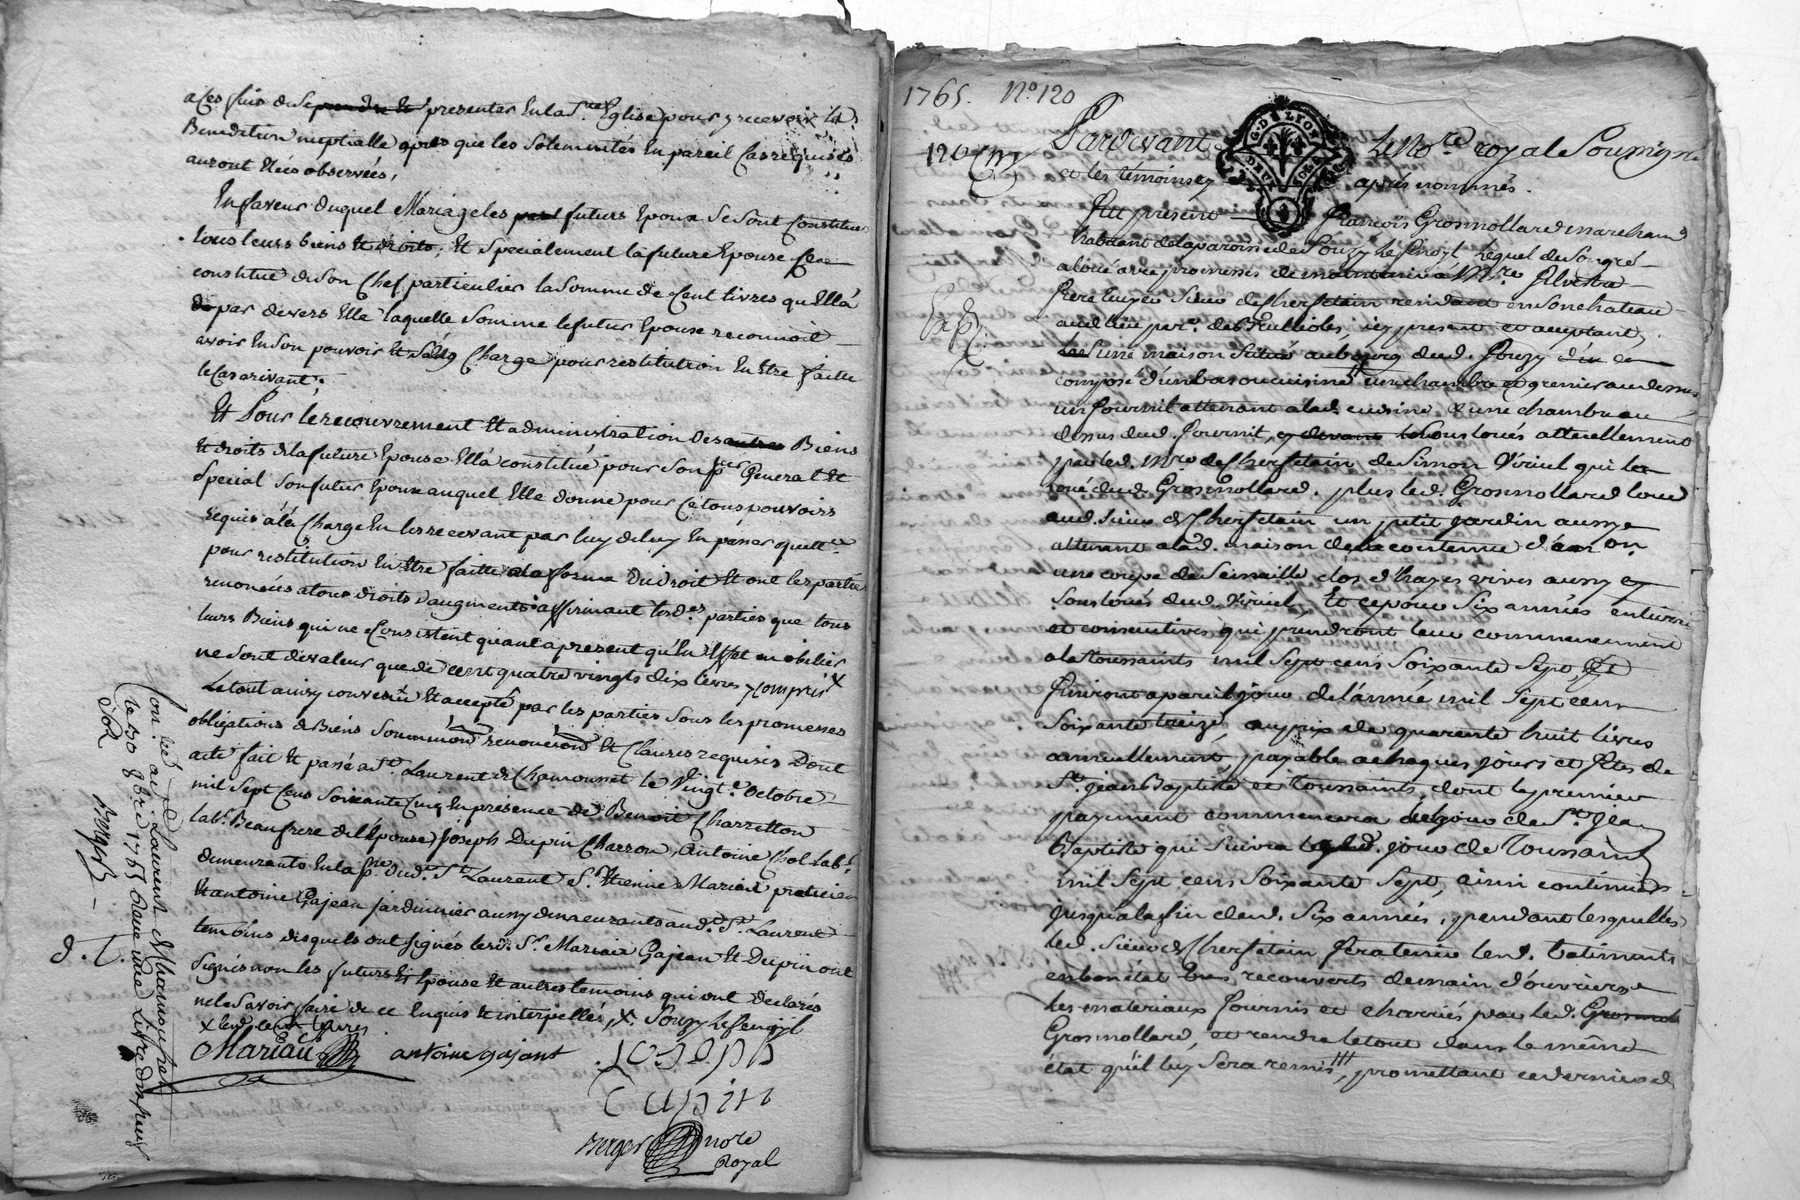 a ces fins de se prendre et presenter en la Ste Eglise pour y recevoir la
Benediction nuptialle apres que les Solemnités en pareil Cas requises
auront étés observées,
En faveur duquel Mariage les futurs Epoux se sont Constitué
tous leurs biens et droits, et Specialement la future Epouse
constitué de son Chef particulier la Somme de Cent livres qu'Ellà
par devers Elle laquelle Somme le futur Epoux reconnoit
avoir en son pouvoir et s'en Charge pour restitution en Etre faitte
le Cas arivant;
Et Pour le recouvrement et administration des autres Biens
et droits de la future Epouse Ellà constitué pour son pr General et
Special son futur Epoux auquel Elle donne pour Ce tous pouvoirs
requis à la Charge en les recevant par luy d'en passer quittce
pour restitution en Etre faitte a la forme du Droit et ont les parties
renoncées a tous droits d'augments affirmant lesdes parties que tous
leurs Biens qui ne Consistent quant a present qu'En Effet mobilier
ne sont de valeur que de cent quatre vingts dix livres y compris x
Le tout ainsy convenu et accepté par les parties Sous les promesses
obligations de Biens Soummion renoncions et Clauses requises Dont
acte fait et passé a St Laurent de Chamousset le Vingte octobre
mil Sept Cens Soixante Cinq En presence de Benoit Charretton
labr Beaufrere de l'Epouse, Joseph Dupin Charron, Antoine Chol labr
demeurants en la pse dud. St Laurent Sr Etienne Mariau praticien
et antoine Gajean jardinier aussy demeurants aud. St Laurent
temoins desquels ont signés lesd. Sr Mariau Gajean et Dupin ont
Signés non les futurs Et Epouse et autres temoins qui ont declarés
ne le Savoir faire de ce Enquis et interpellés, x. Souzy
x lesd. cent livres
Mariau antoine gajant Joseph
Dupin
Berger nore
Royal
Con. led. a St Laurent de Chamousset
le 30 8bre 1765 Recu une Livre
Sols
Berger
d. T.
1765. No. 120
120
G.D LYON
DEUX SOLS
Pardevant Le Nore royal Soussigné
et les témoins cy après nommés.
Fut présent François Grosmollard marchand
habitant de la paroisse de Souzy Lequel de son gré
a loué avec promesses de maintenir a Mre
Sieur de Chersetain residant en son chateau
aud. lieu icy present et acceptant,
une maison Située au bourg dud. Souzy
composé d'un bas ou cuisine une chambre et grenier au dessus
un fournil attenant a lad. cuisine et une chambre au
dessus dud. fournil, Sous loués actuellement
par led. Mre de Chersetain de Simon Viriul qui
dud. Grosmollard. plus led. Grosmollard loue
aud. Sieur de Chersetain un petit jardin aussy
attenant a lad. maison de la contenue d'environ
une coupe de Semaille clos d'hayes vives aussy
Sous loués dud. Viriul, Et ce pour Six années entieres
et consecutives qui prendront leur commencement
a la Toussaints mil Sept cens Soixante Sept, Et
finiront a pareil jour de l'année mil Sept cens
Soixante treize, au prix de quarente huit livres
annuellement, payable a chaques jours et fêtes de
St jean Baptiste et Toussaints, dont le premier
payement commencera le jour de St Jean
Baptiste qui Suivra led. jour de Toussaints
mil Sept cens Soixante Sept, ainsi continuer
jusqu'a la fin desd. Six années, pendant lesquelles
led. Sieur de Chersetain Sera tenir lesd. batiments
en bon état recouverts de main d'ouvriers
Les materiaux fournis et charriés par led.
Grosmollard, et rendre le tout dans le même
état qu'il luy Sera remis, promettant ce dernier